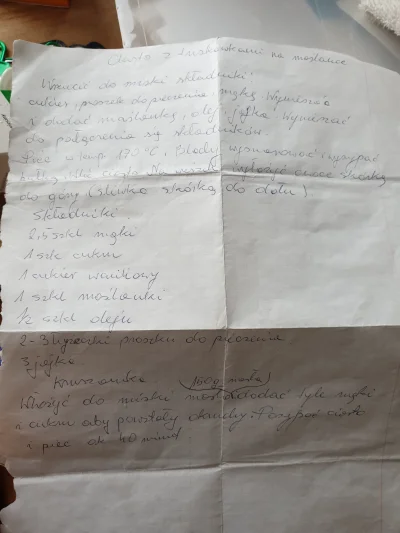 Ciasto z truskawkami na maślance
Wrzucić do miski składniki:
cukier, proszek do pieczenia, mąkę Wymieszać
i dodać maślankę, olej, jajka Wymieszać
do połączenia się składników.
Piec w temp 170°C, Blachę wysmarować i wysypać
bułką, wlać ciasto Na wierzch wyłożyć owoce skórką
do góry (śliwka skórką do dołu)
Składniki.
2,5 szkl mąki
1 szk cukru
1 cukier waniliowy
1 szkl maślanki
1/2 szkl oleju
2-3 łyżeczki proszku do pieczenia
3 jajka
Kruszonka (100g masła)
Włożyć do miski masło dodać tyle mąki
i cukru aby powstały okruchy. Posypać ciasto
i piec ok 40 minut.